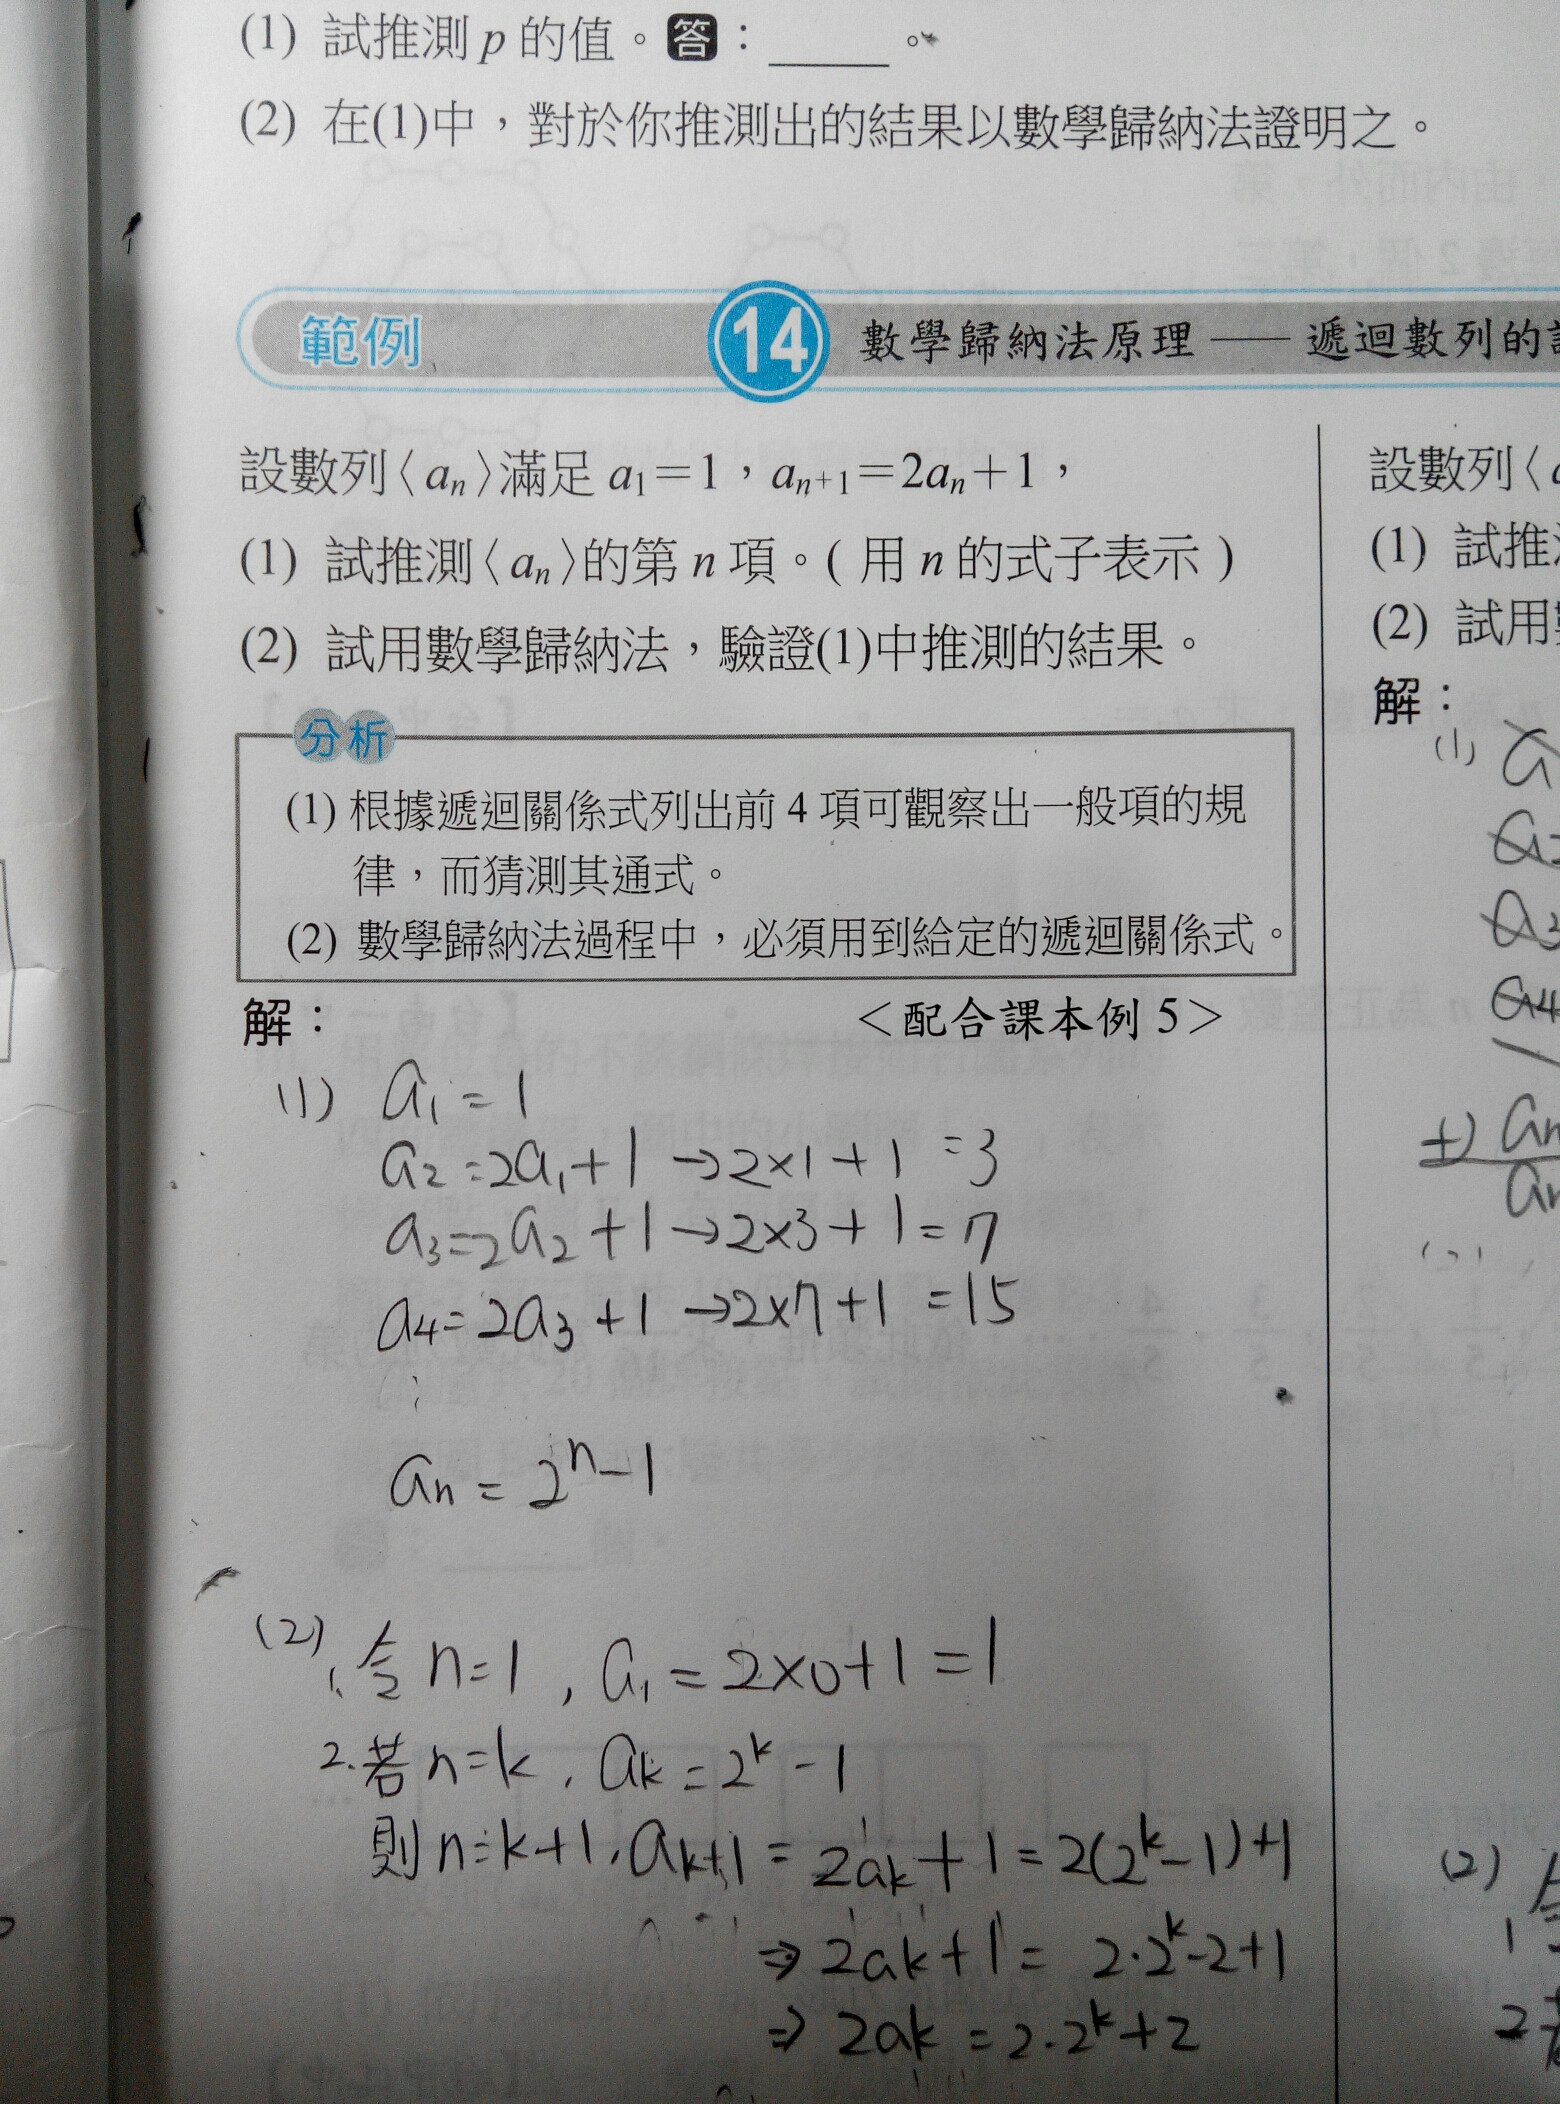 (1) 試推測 p 的值。答：____。
(2) 在(1)中，對於你推測出的結果以數學歸納法證明之。
範例 14 數學歸納法原理 —— 遞迴數列的
設數列〈aₙ〉滿足 a₁＝1，aₙ₊₁＝2aₙ＋1，
(1) 試推測〈aₙ〉的第 n 項。( 用 n 的式子表示 )
(2) 試用數學歸納法，驗證(1)中推測的結果。
分析
(1) 根據遞迴關係式列出前 4 項可觀察出一般項的規
律，而猜測其通式。
(2) 數學歸納法過程中，必須用到給定的遞迴關係式。
解： ＜配合課本例 5＞
(1) a₁ = 1
a₂ = 2a₁ + 1 → 2×1 + 1 = 3
a₃ = 2a₂ + 1 → 2×3 + 1 = 7
a₄ = 2a₃ + 1 → 2×7 + 1 = 15
⋮
aₙ = 2ⁿ − 1
(2) 1. 令 n = 1 , a₁ = 2×0+1 = 1
2. 若 n = k , aₖ = 2ᵏ − 1
則 n = k+1, aₖ₊₁ = 2aₖ + 1 = 2(2ᵏ − 1) + 1
⇒ 2aₖ + 1 = 2·2ᵏ − 2 + 1
⇒ 2aₖ = 2·2ᵏ + 2
設數列〈
(1) 試推
(2) 試用
解：
(1) a
a₂
a₃
a₄
+) aₙ
aₙ
(2)
1
2